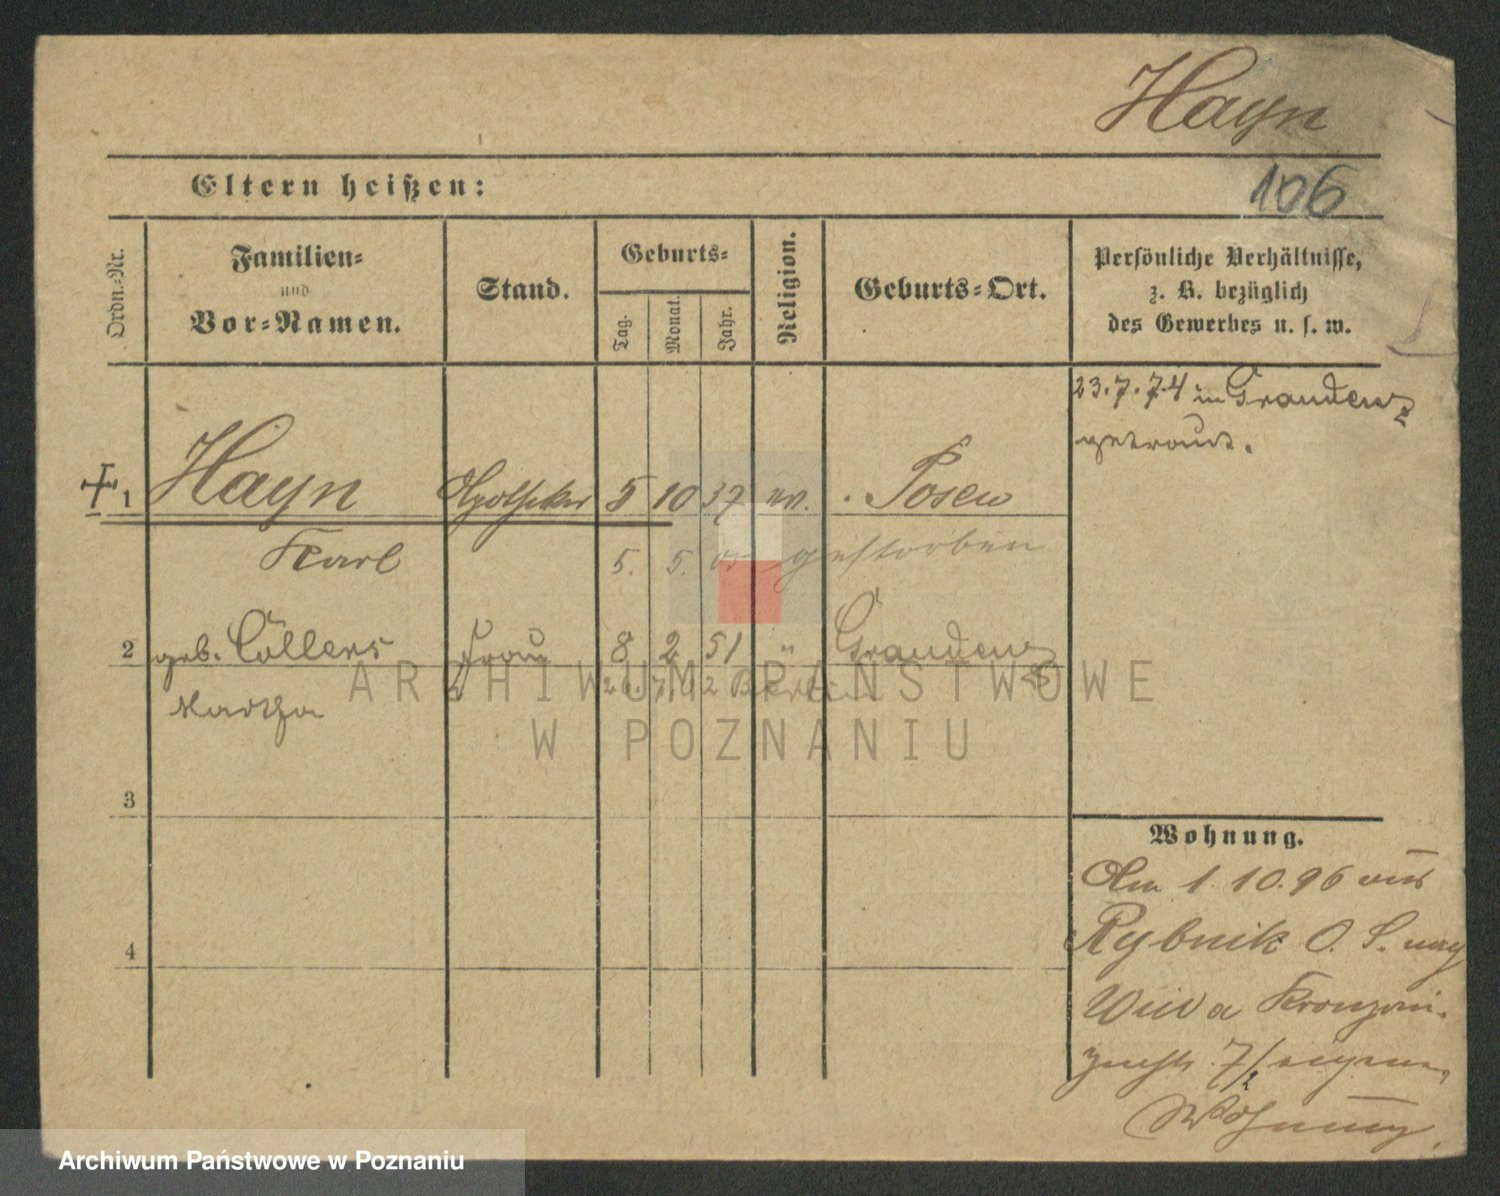 Hayn
106
Eltern heißen:
Ordn.-Nr.
Familien-
und
Vor-Namen.
Stand.
Geburts-
Tag.
Monat.
Jahr.
Religion.
Geburts-Ort.
Persönliche Verhältnisse,
z. B. bezüglich
des Gewerbes u. s. w.
23.7.74 in Graudenz
getraut.
1 Hayn Apotheker 5 10 37 ev. Posen
Karl 5. 5. gestorben
2 geb. Cöllers Frau 8 2 51 " Graudenz
Martha Berlin
3
4
Wohnung.
Am 1.10.96 aus
Rybnik O. S. nach
Wilda Kronprin-
zenstr. 7/2 eigene
Wohnung.
ARCHIWUM PAŃSTWOWE
W POZNANIU
Archiwum Państwowe w Poznaniu